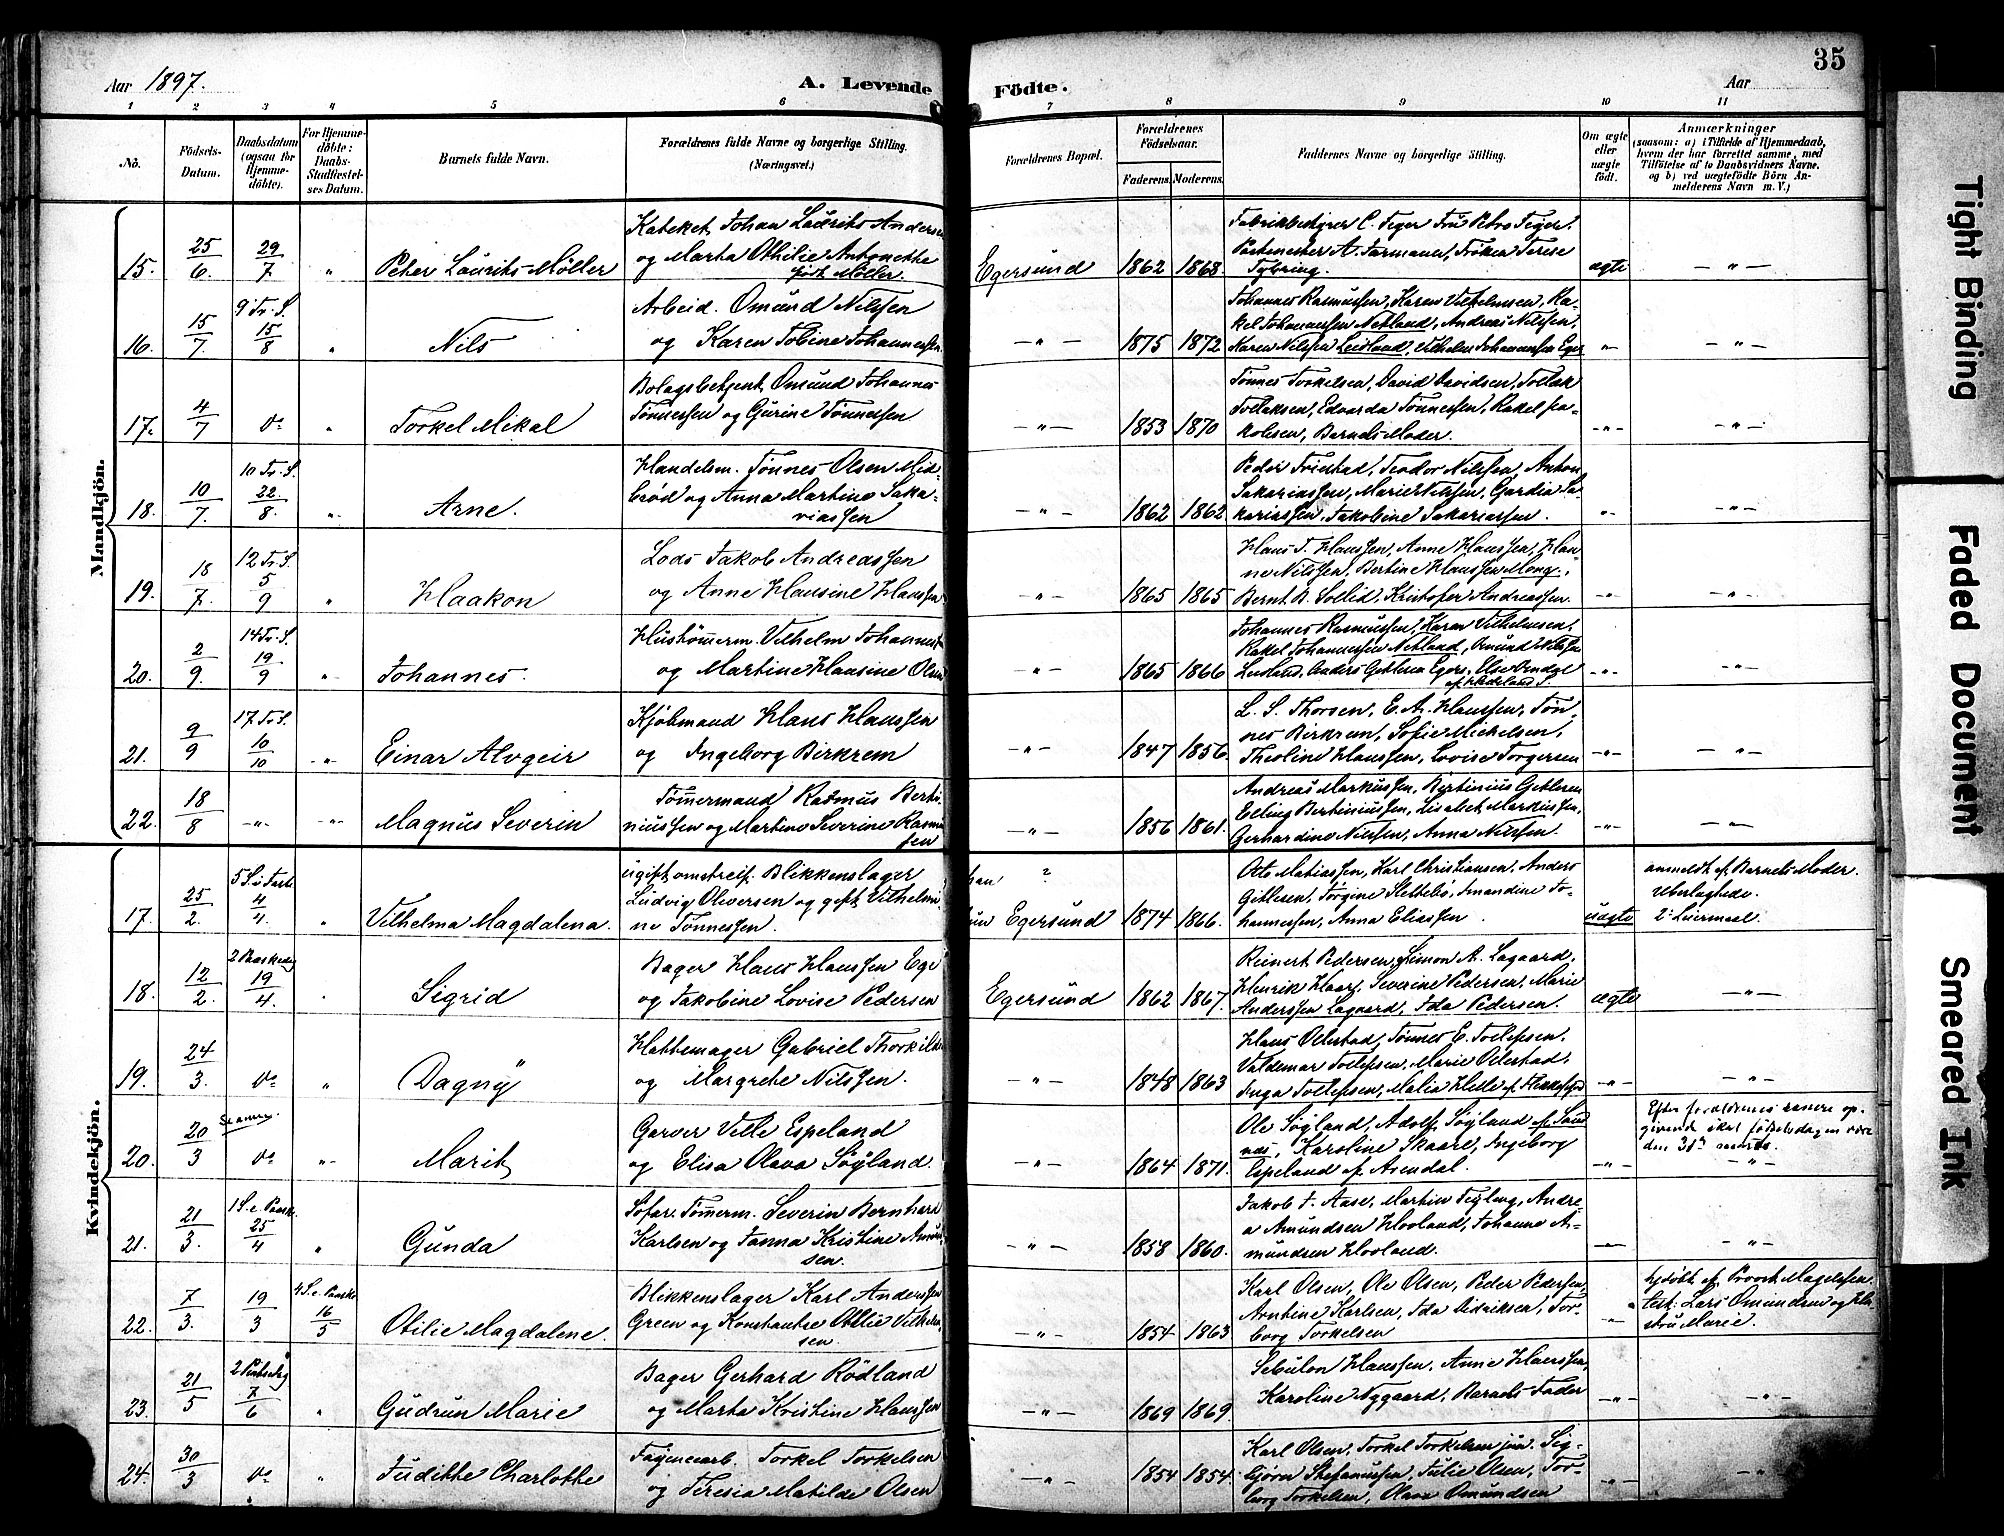 35
Aar 1897.
A. Levende Födte.
Aar
1 2 3 4 5 6 7 8 9 10 11
No.
Födsels-
Datum.
Daabsdatum
(ogsaa for
Hjemme-
döbte).
For Hjemme-
döbte:
Daabs-
Stadfæstel-
ses Datum.
Barnets fulde Navn.
Forældrenes fulde Navne og borgerlige Stilling.
(Næringsvei.)
Forældrenes Bopæl.
Forældrenes
Födselsaar.
Faderens. Moderens.
Faddernes Navne og borgerlige Stilling.
Om ægte
eller
uægte
födt.
Anmærkninger
(saasom: a) i Tilfælde af Hjemmedaab,
hvem der har forrettet samme, med
Tilföielse af to Daabsvidners Navne.
og b) ved uægtefödte Börn An-
melderens Navn m. V.)
Mandkjön.
15. 25/6. 29/7 " Peter Laurits Möller
Kateket Johan Laurits Andersen
og Marta Othilie Antonette
födt Möller.
Egersund 1862 1868
Fabrikbestyrer C. Feyer Fru Petra Feyer,
Postmester A. Farmann, Fröken Terese
Tybring.
ægte — " —
16. 15/7. 9 Tr. S. 15/8 " Nils
Arbeid. Omund Nilssen
og Karen Tobine Johannessen
— " — 1875 1872
Johannes Rasmussen, Karen Vilhelmsen, Ra-
kel Johannessen Netland, Andreas Nilssen,
Karen Nilssen Leidland, Vilhelm Johannessen Eger
" — " —
17. 4/7 do " Torkel Mikal
Bolagsbetjent Omund Johannes
Tönnessen og Gurine Tönnessen
— " — 1853 1870
Tönnes Torkelsen, David Davidsen, Tollak
Tollaksen, Edvarda Tönnessen, Rakel Ja-
kobsen, Barnets Moder.
— " — — " —
18. 10/7. 10 Tr. S. 22/8. " Arne.
Handelsm. Tönnes Olsen Mid-
bröd og Anna Martine Saka-
riassen
— " — 1862 1862
Peder Friestad, Teodor Nilssen, Anton
Sakariassen, Marie Nilssen, Gardia Sa-
kariassen, Jakobine Sakariassen.
" — " —
19. 18/7. 12 Tr. S. 5/9 " Haakon
Lods Jakob Andreassen
og Anne Hansine Hanssen
— " — 1865 1865
Hans T. Hanssen, Anne Hanssen, Han-
ne Nilssen, Bertine Hanssen Mong,
Bernt B. Sollid, Kristofer Andreassen.
— " — — " —
20. 2/9. 14 Tr. S. 19/9 " Johannes.
Hustömerm. Vilhelm Johannessen
og Martine Hansine Olsen
— " — 1865 1866
Johannes Rasmussen, Karen Vilhelmsen,
Rakel Johannessen Netland, Omund Nilssen
Leidland, Anders Getlesen Egers.
— " — — " —
21. 9/9 17 Tr. S. 10/10 " Einar Alvgeir
Kjöbmand Hans Hanssen
og Ingeborg Birkrem
— " — 1847 1856
L. S. Thorsen, E. A. Hanssen, Tön-
nes Birkrem, Sofie Mickelsen,
Theoline Hanssen, Lovise Torgersen
— " — — " —
22. 18/8 — " — — " — Magnus Severin
Tömermand Rasmus Berti-
niussen og Martine Severine Rasmus-
sen
— " — 1856 1861.
Andreas Markussen, Bertinius Getlesen
Elling Bertiniussen, Lisabet Markussen,
Gerhardine Nilssen, Anna Nilssen.
— " — — " —
Kvindekjön.
17. 25/2. 5 S. i Faste 4/4. " Vilhelma Magdalena.
ugift omstreif. Blikkenslager
Ludvig Oliversen og gift Vilhelmi-
ne Tönnessen.
han ?
hun Egersund 1874 1866.
Otto Matiassen, Karl Christiansen, Anders
Getlesen, Jörgine Slettebö, Amandine Jo-
hannessen, Anna Eliassen.
uægte
anmeldt af Barnets Moder
Uberlaghede.
2det Leiermaal.
18. 12/2. 2 Paaskedag 19/4. " Sigrid
Bager Hans Hanssen Ege
og Jakobine Lovise Pedersen
Egersund 1862 1867.
Reinert Pedersen, Simon A. Lagaard,
Henrik Haar, Severine Pedersen, Marie
Anderssen Lagaard, Ida Pedersen.
ægte — " —
19. 24/3. do " Dagny
Hattemager Gabriel Thorkildsen
og Margrete Nilssen.
— " — 1848 1863
Hans Ollestad, Tönnes E. Tollefsen,
Valdemar Tollefsen, Marie Ollestad,
Inga Tollefsen, Malia Helle af Flekkefjord
— " — — " —
20. 20/3 do " Marit
Garver Velle Espeland
og Elisa Olava Söyland.
— " — 1864 1871.
Ole Söyland, Adolf Söyland af Sand-
nes, Karoline Skaar, Ingeborg
Espeland af Arendal.
— " —
Efter forældrenes senere op-
givende skal födselsdagen være
den 31te marts.
— " —
21. 21/3. 1 S. e. Paaske. 25/4 " Gunda
Sofar. Tömerm. Severin Bernhard
Karlsen og Janna Kristine Amund-
sen.
— " — 1858 1860.
Jakob J. Aase, Martin Tegling, Andre-
a Amundsen Hovland, Johanne A-
mundsen Hovland.
— — " —
22. 7/3. 19/3 4 S. e. Paaske 16/5 Otilie Magdalene.
Blikkenslager Karl Anderssen
Green og Konstantse Otilie Vilhelm-
sen.
— " — 1854 1863
Karl Olsen, Ole Olsen, Peder Pedersen,
Arntine Karlsen, Ida Didriksen, Tor-
borg Torkelsen
— " —
hjdöbt af Provst Magelssen
test: Lars Omundsen og Hu-
stru Marie.
23. 21/5 2 Pintsedag 7/6 " Gudrun Marie
Bager Gerhard Rödland
og Marta Kristine Hanssen
— " — 1869 1869
Sebulon Hanssen, Anne Hanssen,
Karoline Nygaard, Barnets Fader
— " — — " —
24. 30/3 do " Juditte Charlotte
Fajancearb. Torkel Torkelsen
og Teresia Matilde Olsen
— " — 1854 1854
Karl Olsen, Torkel Torkelsen jun. Sig-
björn Stefanussen, Julie Olsen, Tor-
borg Torkelsen, Olava Omundsen
— " — — " —
Tight Binding
Faded Document
Smeared Ink